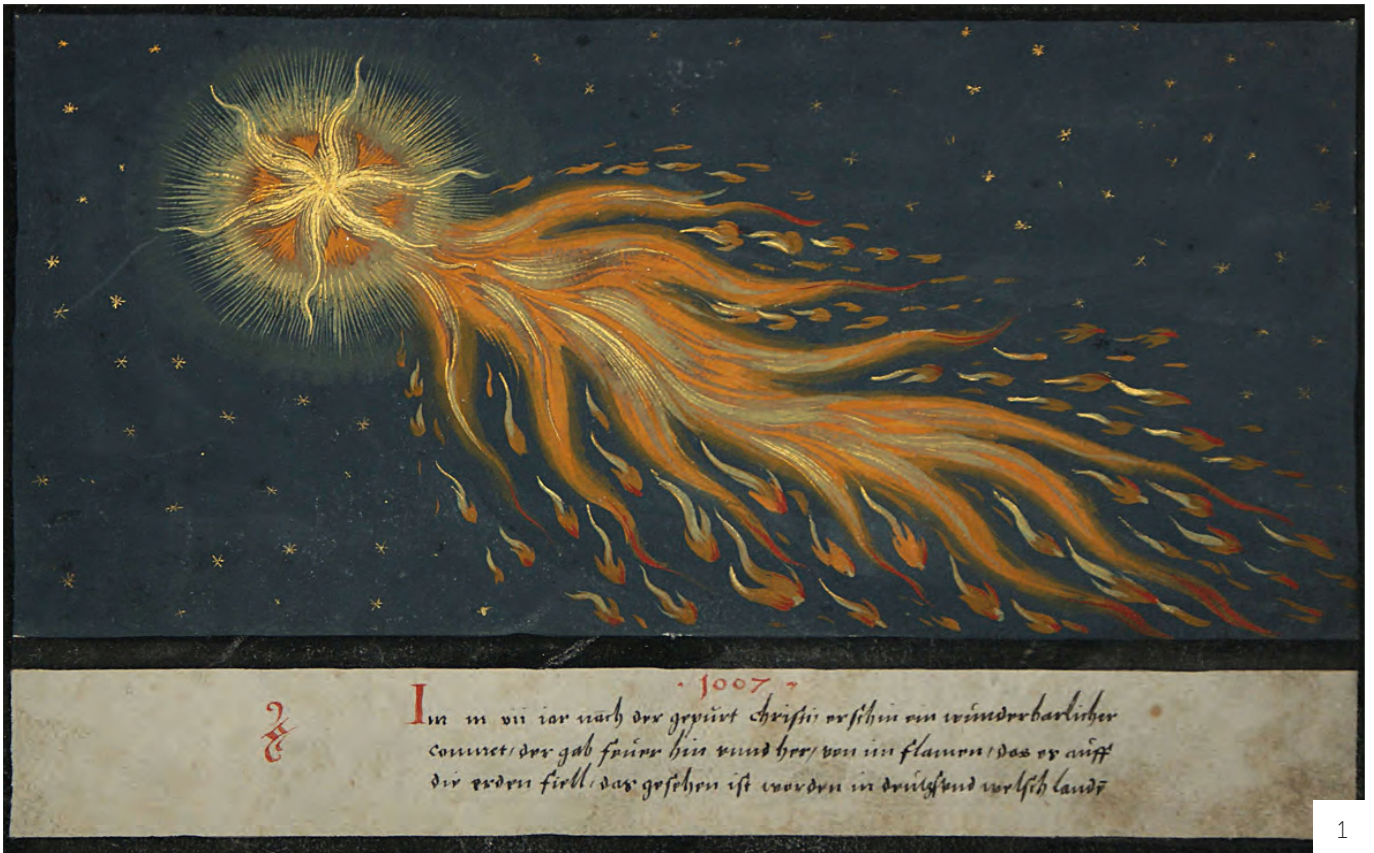 · 1007 ·
Im m vii iar nach der gepurt christi erschin ein wunderbarlicher
comnet / der gab feuer hin vnnd her / von im flamen / das es auff
die erden fiell / das gesehen ist worden in welsch lande
1